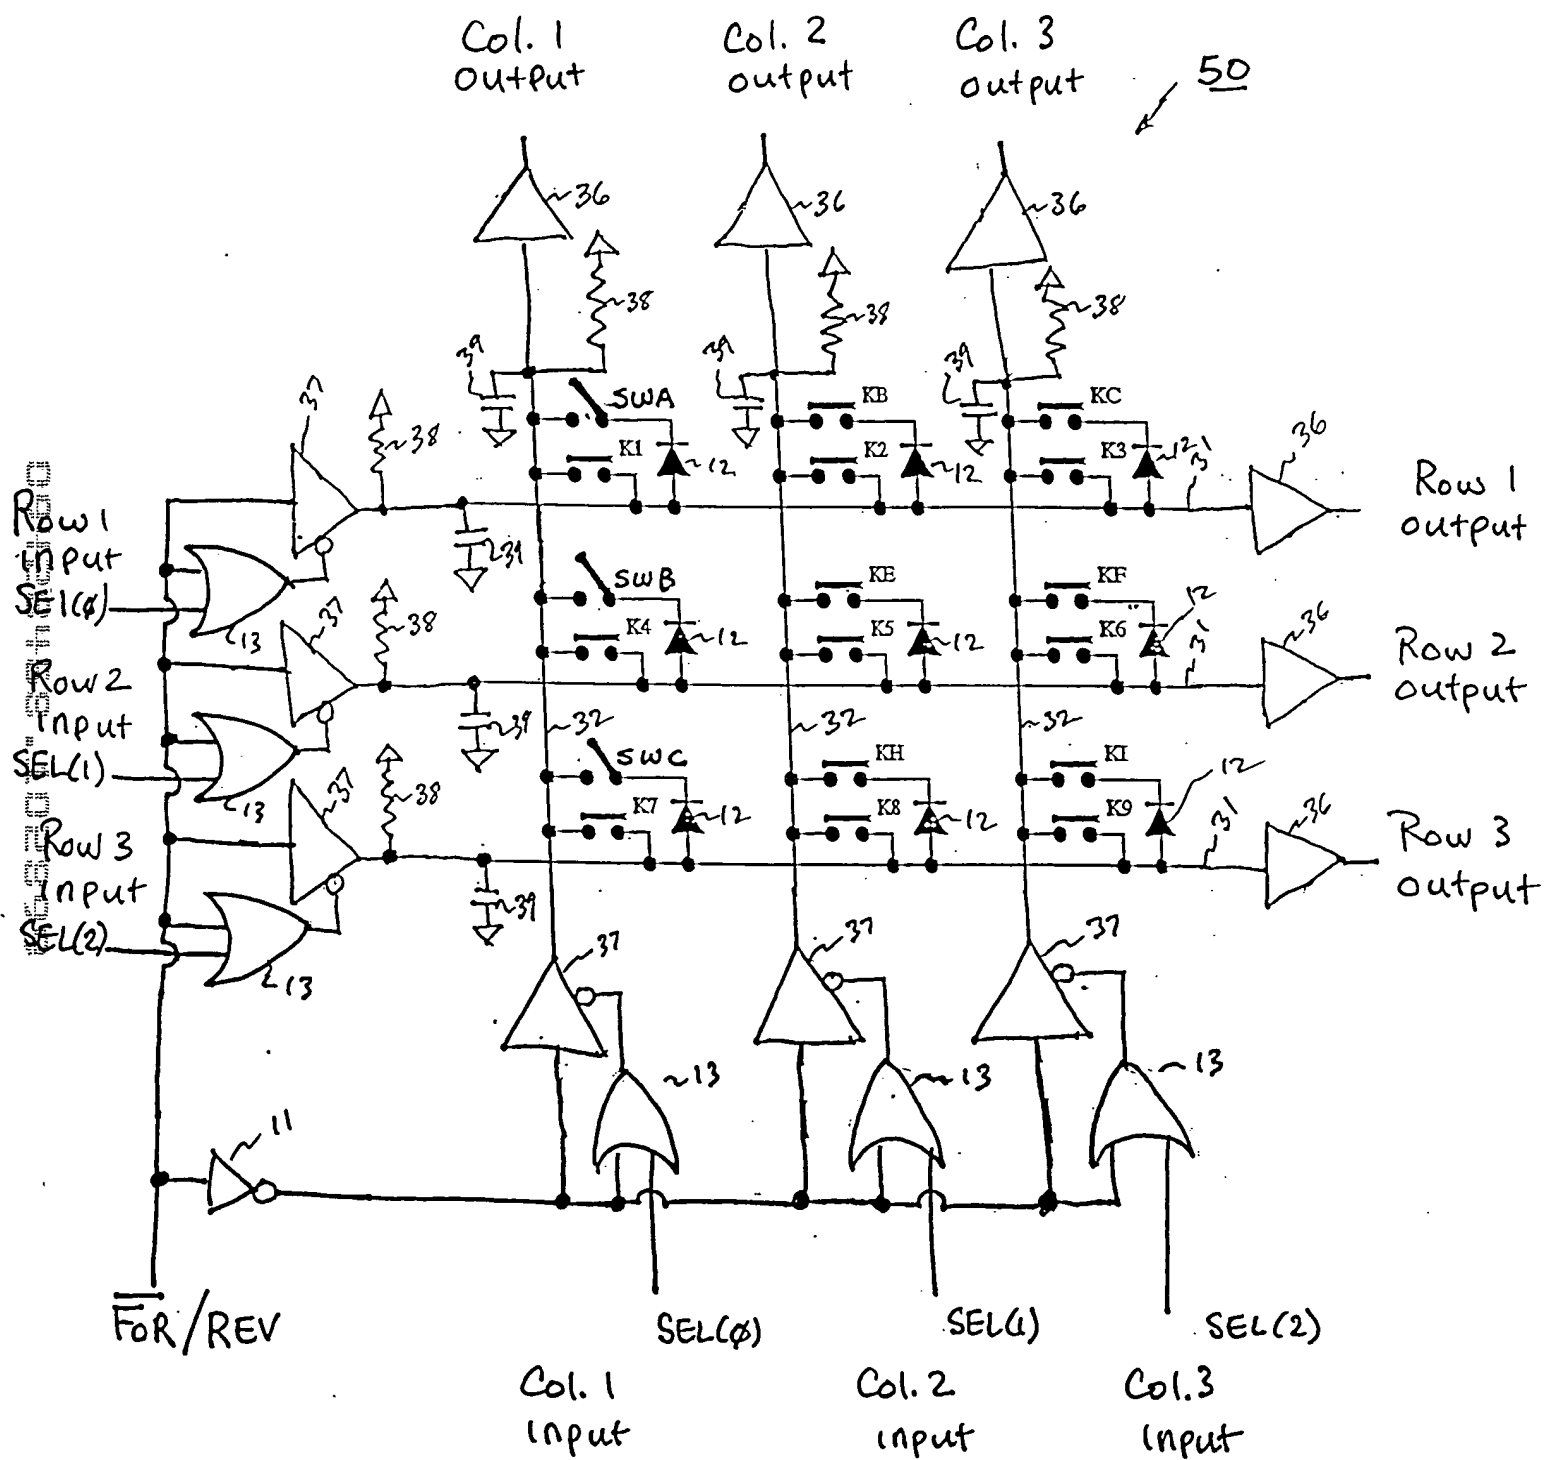 Col. 1
output
Col. 2
output
Col. 3
output
50
36
36
36
38
38
38
39
39
39
37
38
SWA
KB
KC
K1
12
K2
12
K3
12
31
36
Row 1
output
Row 1
input
SEL(0)
39
13
37
38
SWB
KE
KF
12
K4
12
K5
12
K6
31
36
Row 2
output
Row 2
input
SEL(1)
39
32
32
32
13
37
38
SWC
KH
KI
12
K7
12
K8
12
K9
31
36
Row 3
output
Row 3
input
SEL(2)
39
13
37
37
37
13
13
13
11
FOR/REV
SEL(0)
SEL(1)
SEL(2)
Col. 1
input
Col. 2
input
Col. 3
input